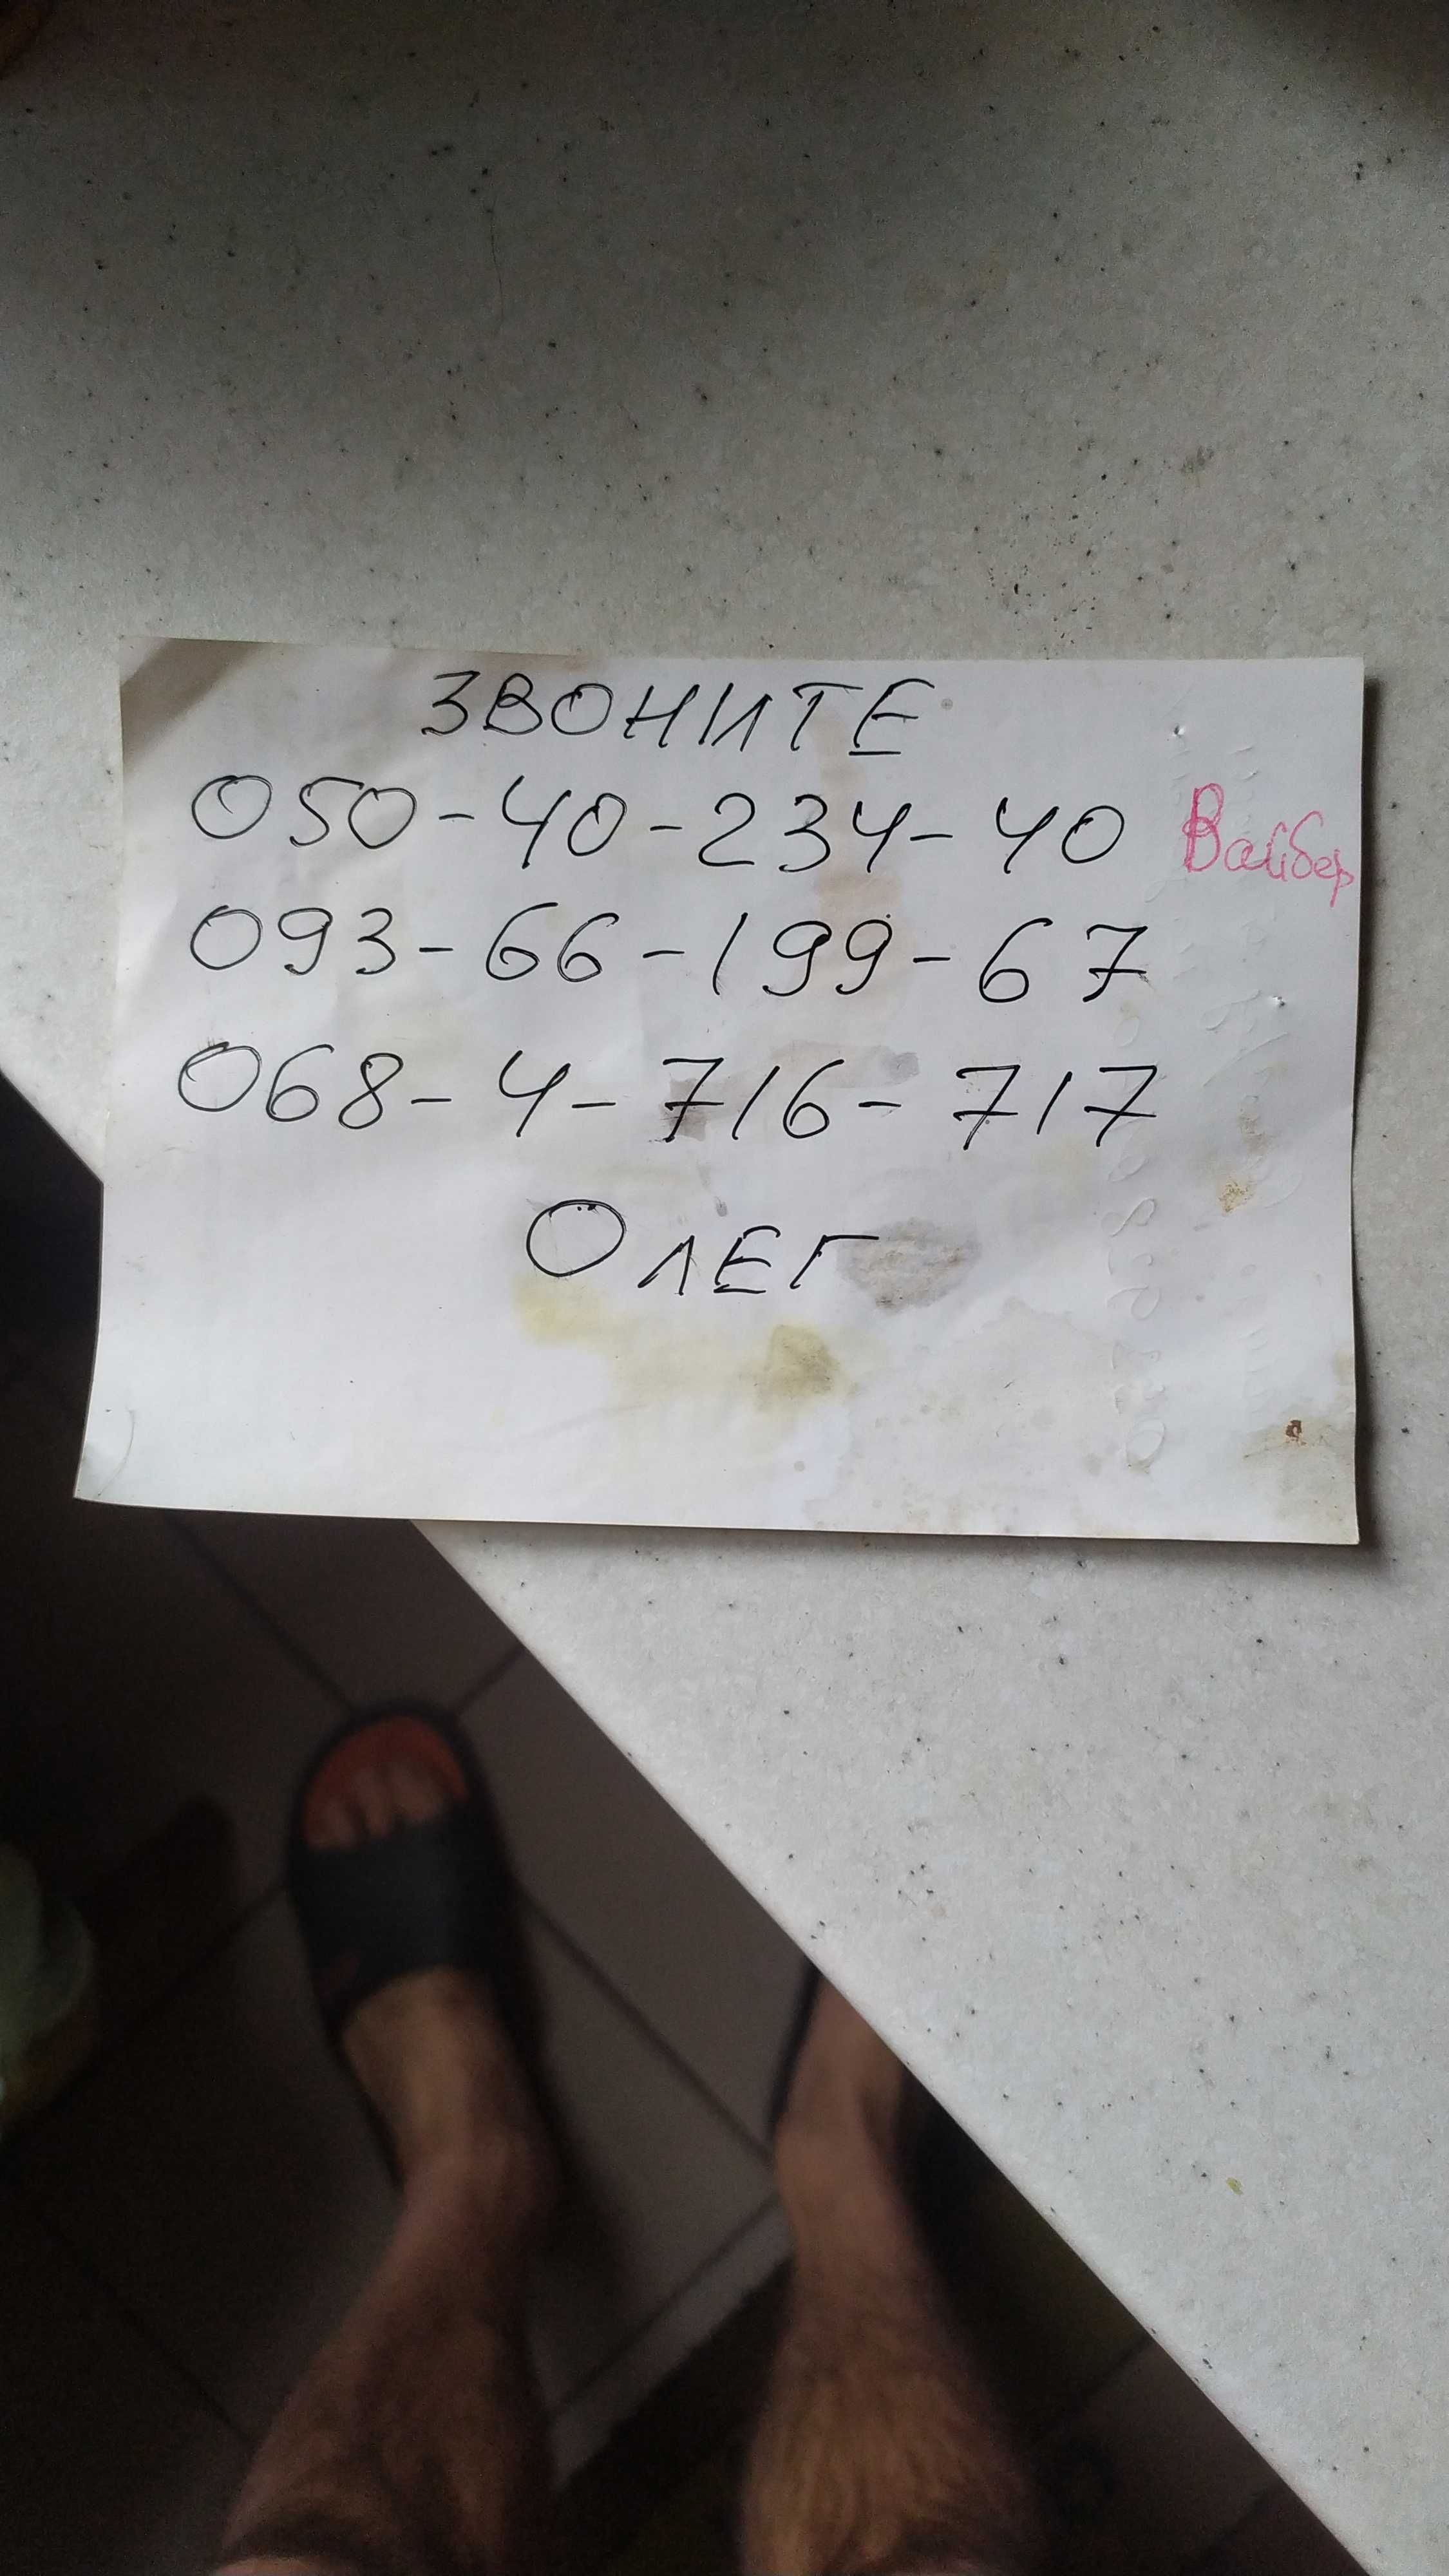 ЗВОНИТЕ
050-40-234-40 Вайбер
093-66-199-67
068-4-716-717
ОЛЕГ